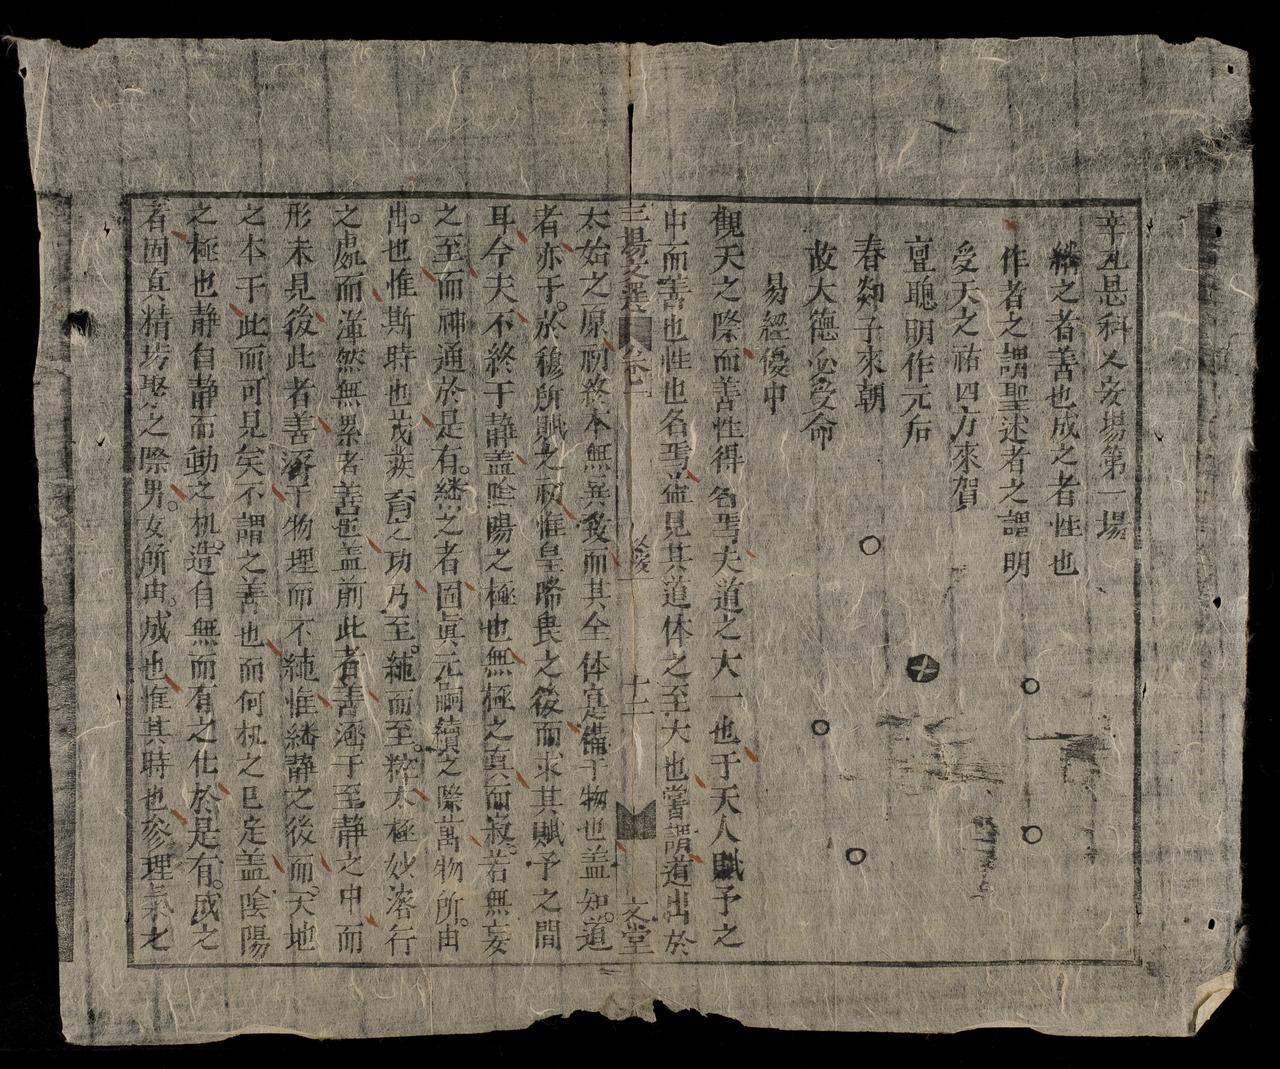 辛元恩科乂安場第一場
繼之者善也成之者性也
作者之謂聖述者之謂明
受天之祐四方來賀
亶聰明作元后
春郯子來朝
故大德必受命
易經優中
觀天之際而善性得名焉夫道之大一也于天人賦予之
中而善也性也名焉益見其道体之至大也嘗謂道出於
三場文選 十二 文堂
太始之原初終本無異致而其全体寔備于物也盖知道
者亦于於穆所賦之初惟皇降畏之後而求其賦予之間
耳今夫不終于静盖陰陽之極也無極之真而寂若無妄
之至而神通於是有繼之者固眞元嗣續之際萬物所由
出也惟斯時也茂蔟育之功乃至純而至粹太極妙溶行
之處而渾然無累者善也盖前此者善涵于至静之中而
形未見後此者善溶于物理而不純惟繼静之後而天地
之本于此而可見矣不謂之善也而何机之已定盖陰陽
之極也静自静而動之机造自無而有之化於是有成之
者固真精媾聚之際男女所由成也惟其時也參理氣之